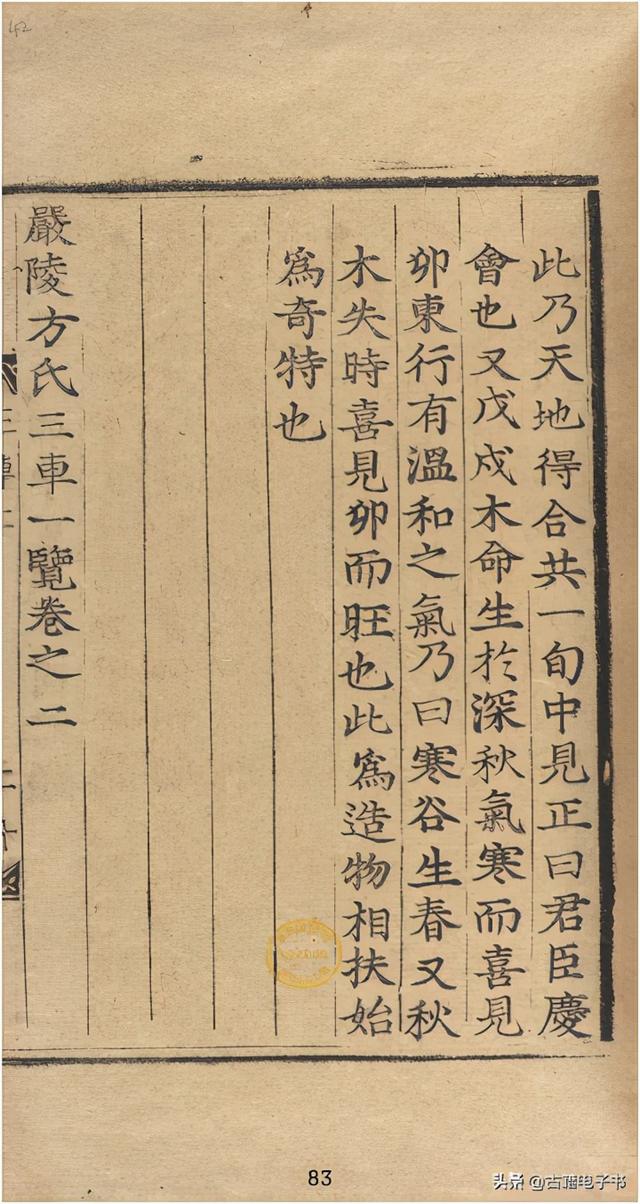 此乃天地得合共一旬中見正曰君臣慶
會也又戊戌木命生於深秋氣寒而喜見
卯東行有溫和之氣乃曰寒谷生春又秋
木失時喜見卯而旺也此爲造物相扶始
爲奇特也
嚴陵方氏三車一覽卷之二
83
头条 @古籍电子书